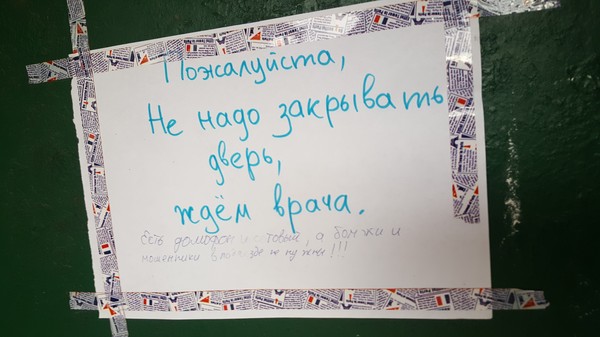 Пожалуйста,
Не надо закрывать
дверь,
ждём врача.
Есть домофон и, а бомжи и
мошенники в подъезде не нужны!!!